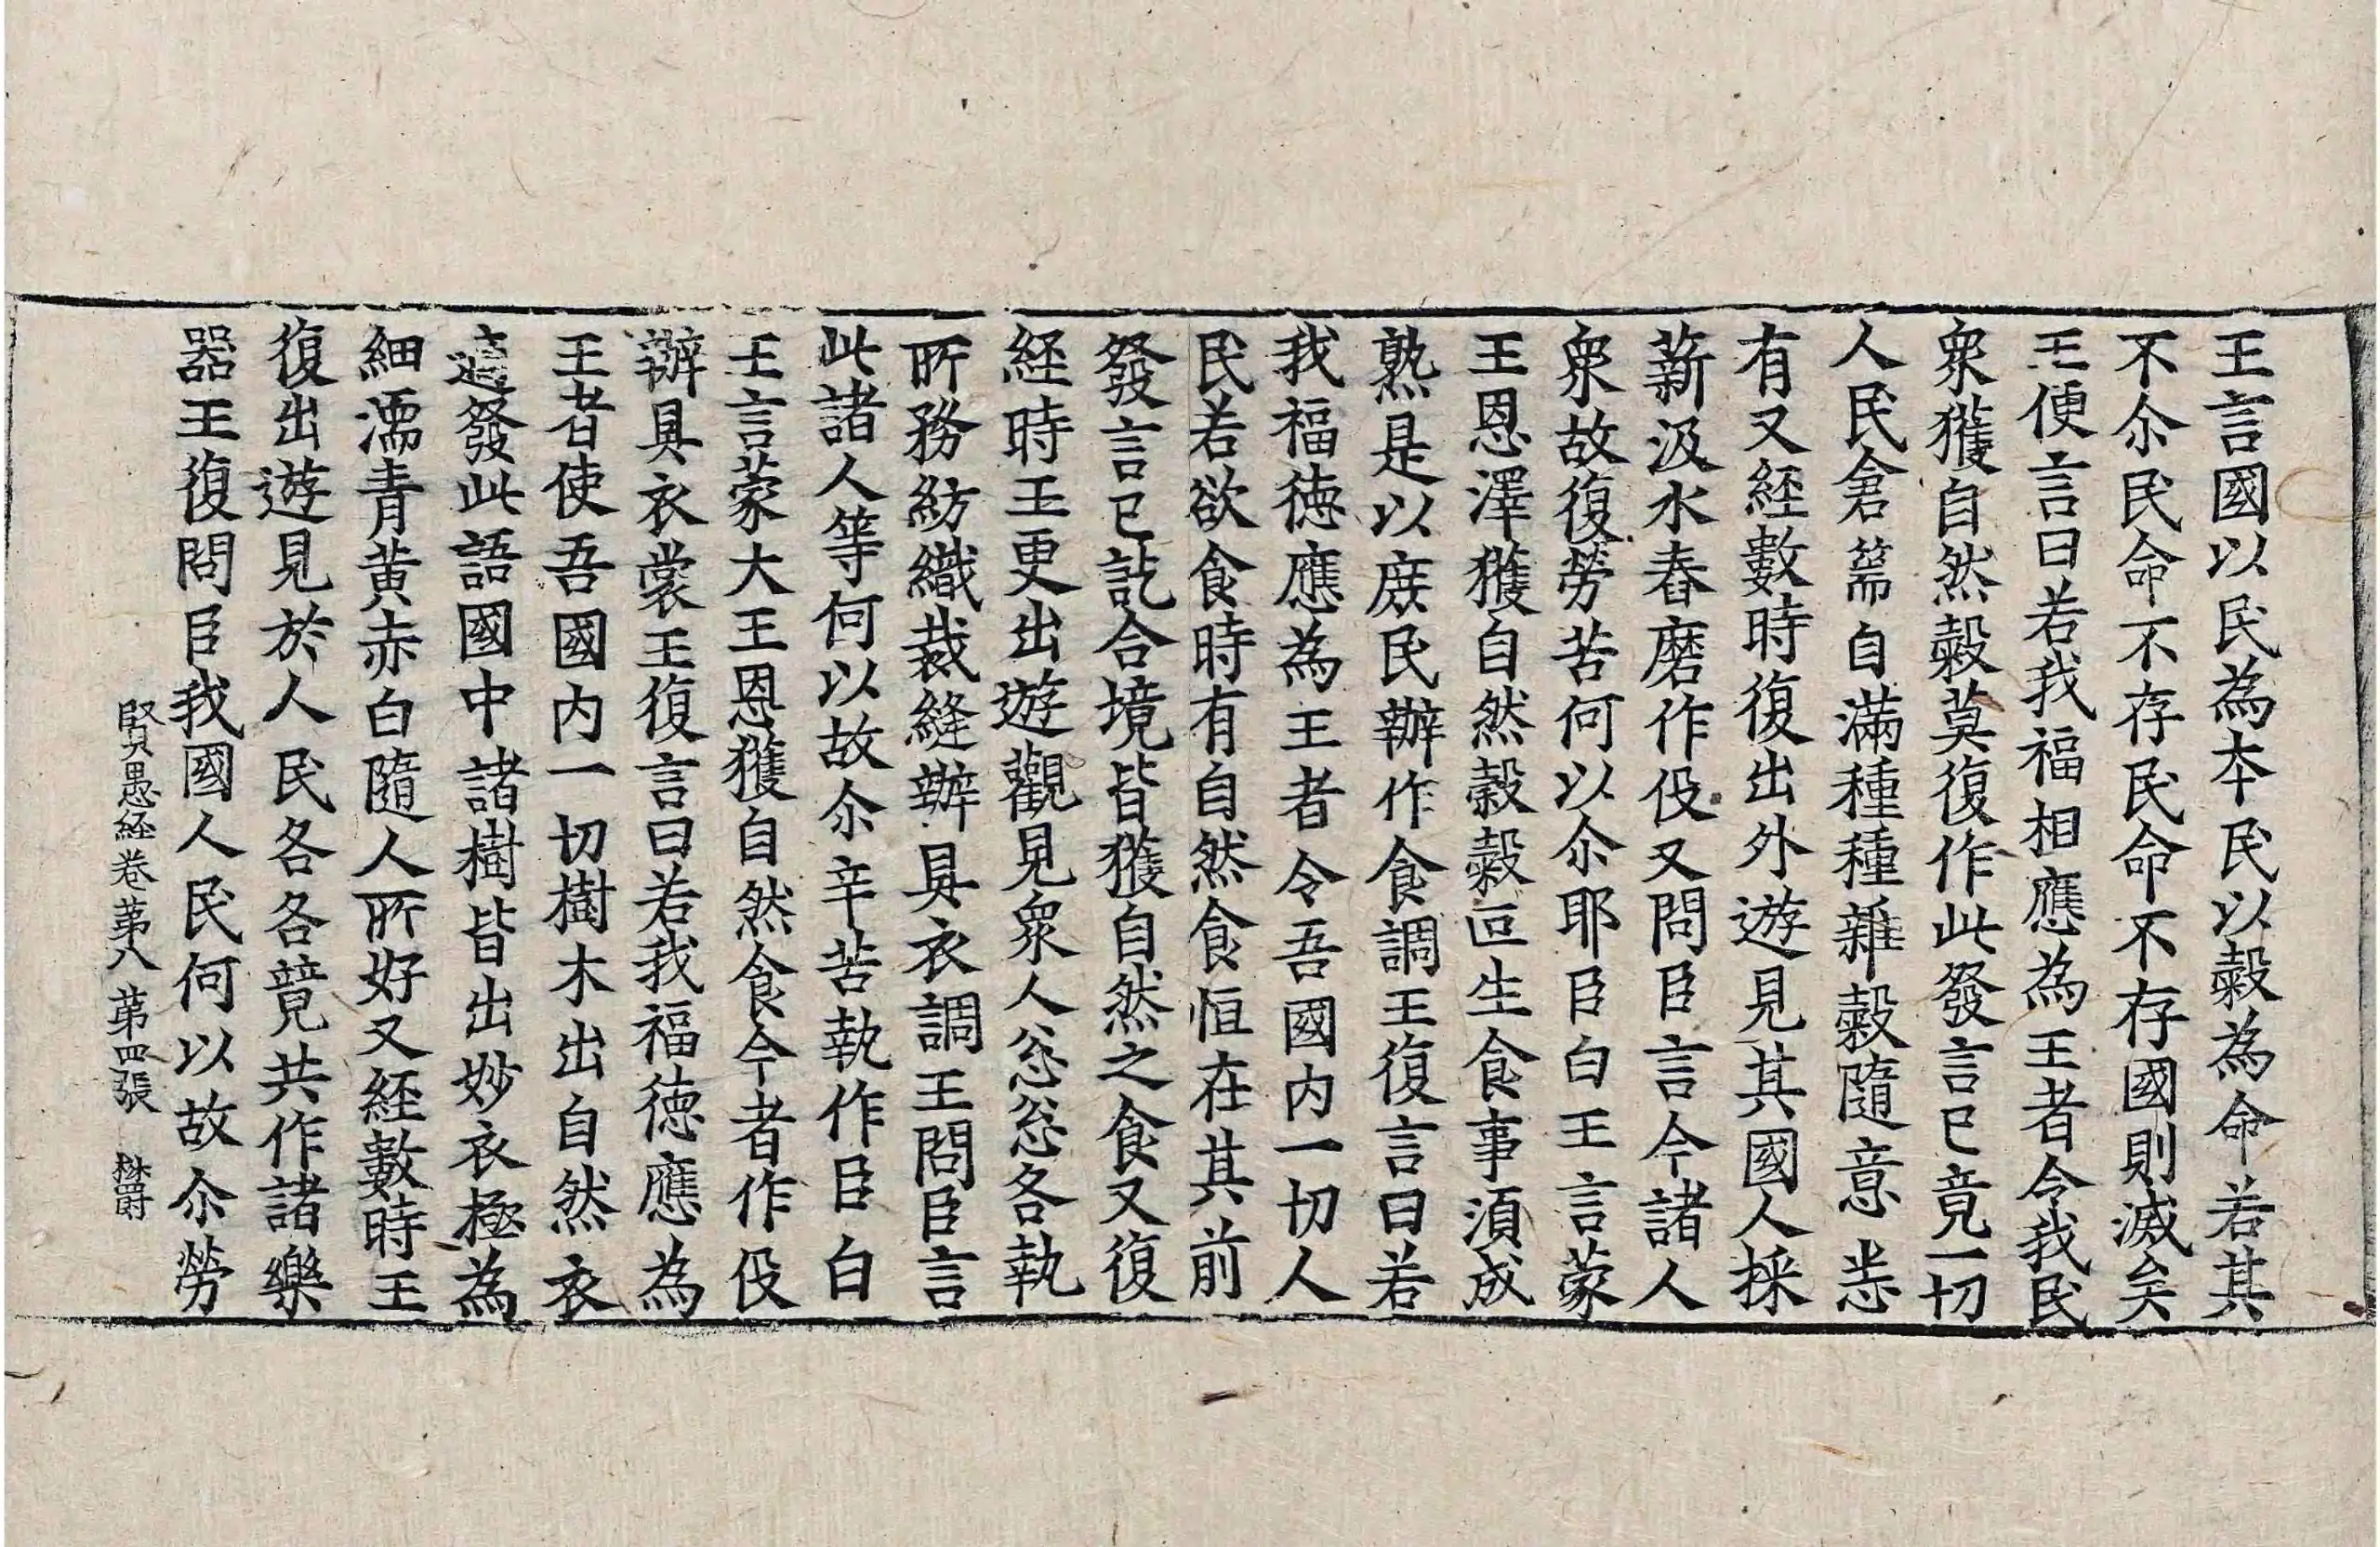 王言國以民為本民以糓為命若其
不尒民命不存民命不存國則滅矣
王便言曰若我福相應為王者令我民
衆獲自然糓莫復作此發言已竟一切
人民倉篅自滿種種雜糓隨意悉
有又経數時復出外遊見其國人採
薪汲水舂磨作伇又問臣言今諸人
衆故復勞苦何以尒耶臣白王言蒙
王恩澤獲自然糓糓叵生食事湏成
熟是以庻民辦作食調王復言曰若
我福徳應為王者令吾國内一切人
民若欲食時有自然食恒在其前
發言已訖合境皆獲自然之食又復
経時王更出遊觀見衆人忩忩各執
所務紡織裁縫辦具衣調王問臣言
此諸人等何以故尒辛苦執作臣白
王言蒙大王恩獲自然食今者作伇
辦具衣裳王復言曰若我福徳應為
王者使吾國内一切樹木出自然衣
適發此語國中諸樹皆出妙衣極為
細濡青黃赤白隨人所好又経數時王
復出遊見於人民各各競共作諸樂
器王復問臣我國人民何以故尒勞
賢愚経卷苐八 苐四張 欝